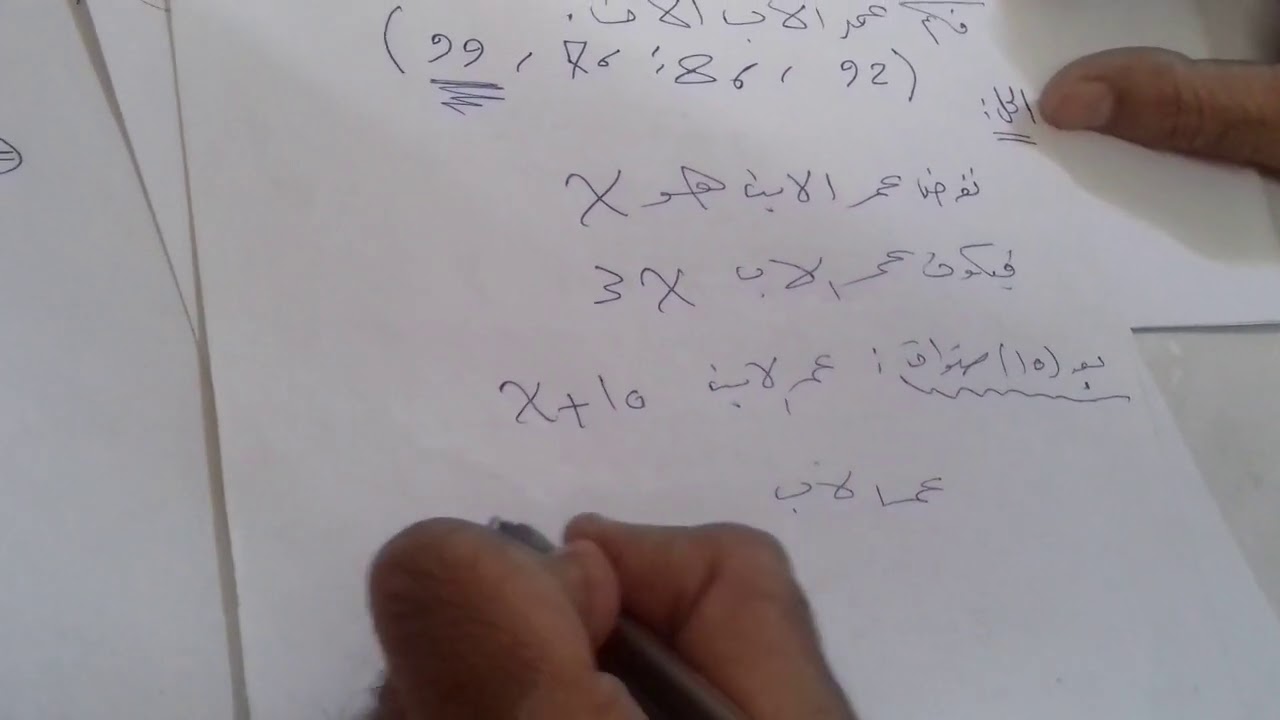 فكم عمر الاب الان .
(92 , 86 , 76 , 99)
الحل:
نفرض عمر الابن هو X
فيكون عمر الاب 3X
بعد (10) سنوات : عمر الابن X+10
عمر الاب